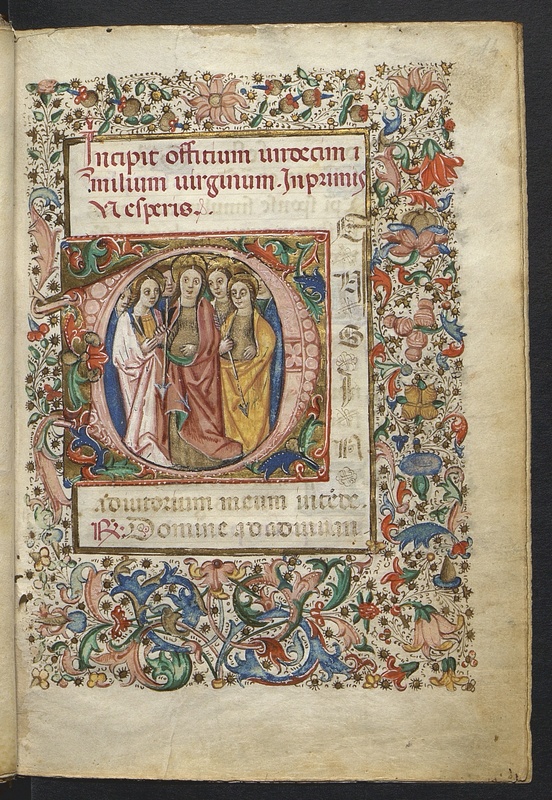 Incipit officium undecim
milium uirginum. In primis
Vesperis
D
E
V
S
I
N
adiutorium meum intēde.
R: Domine ad adiuuan